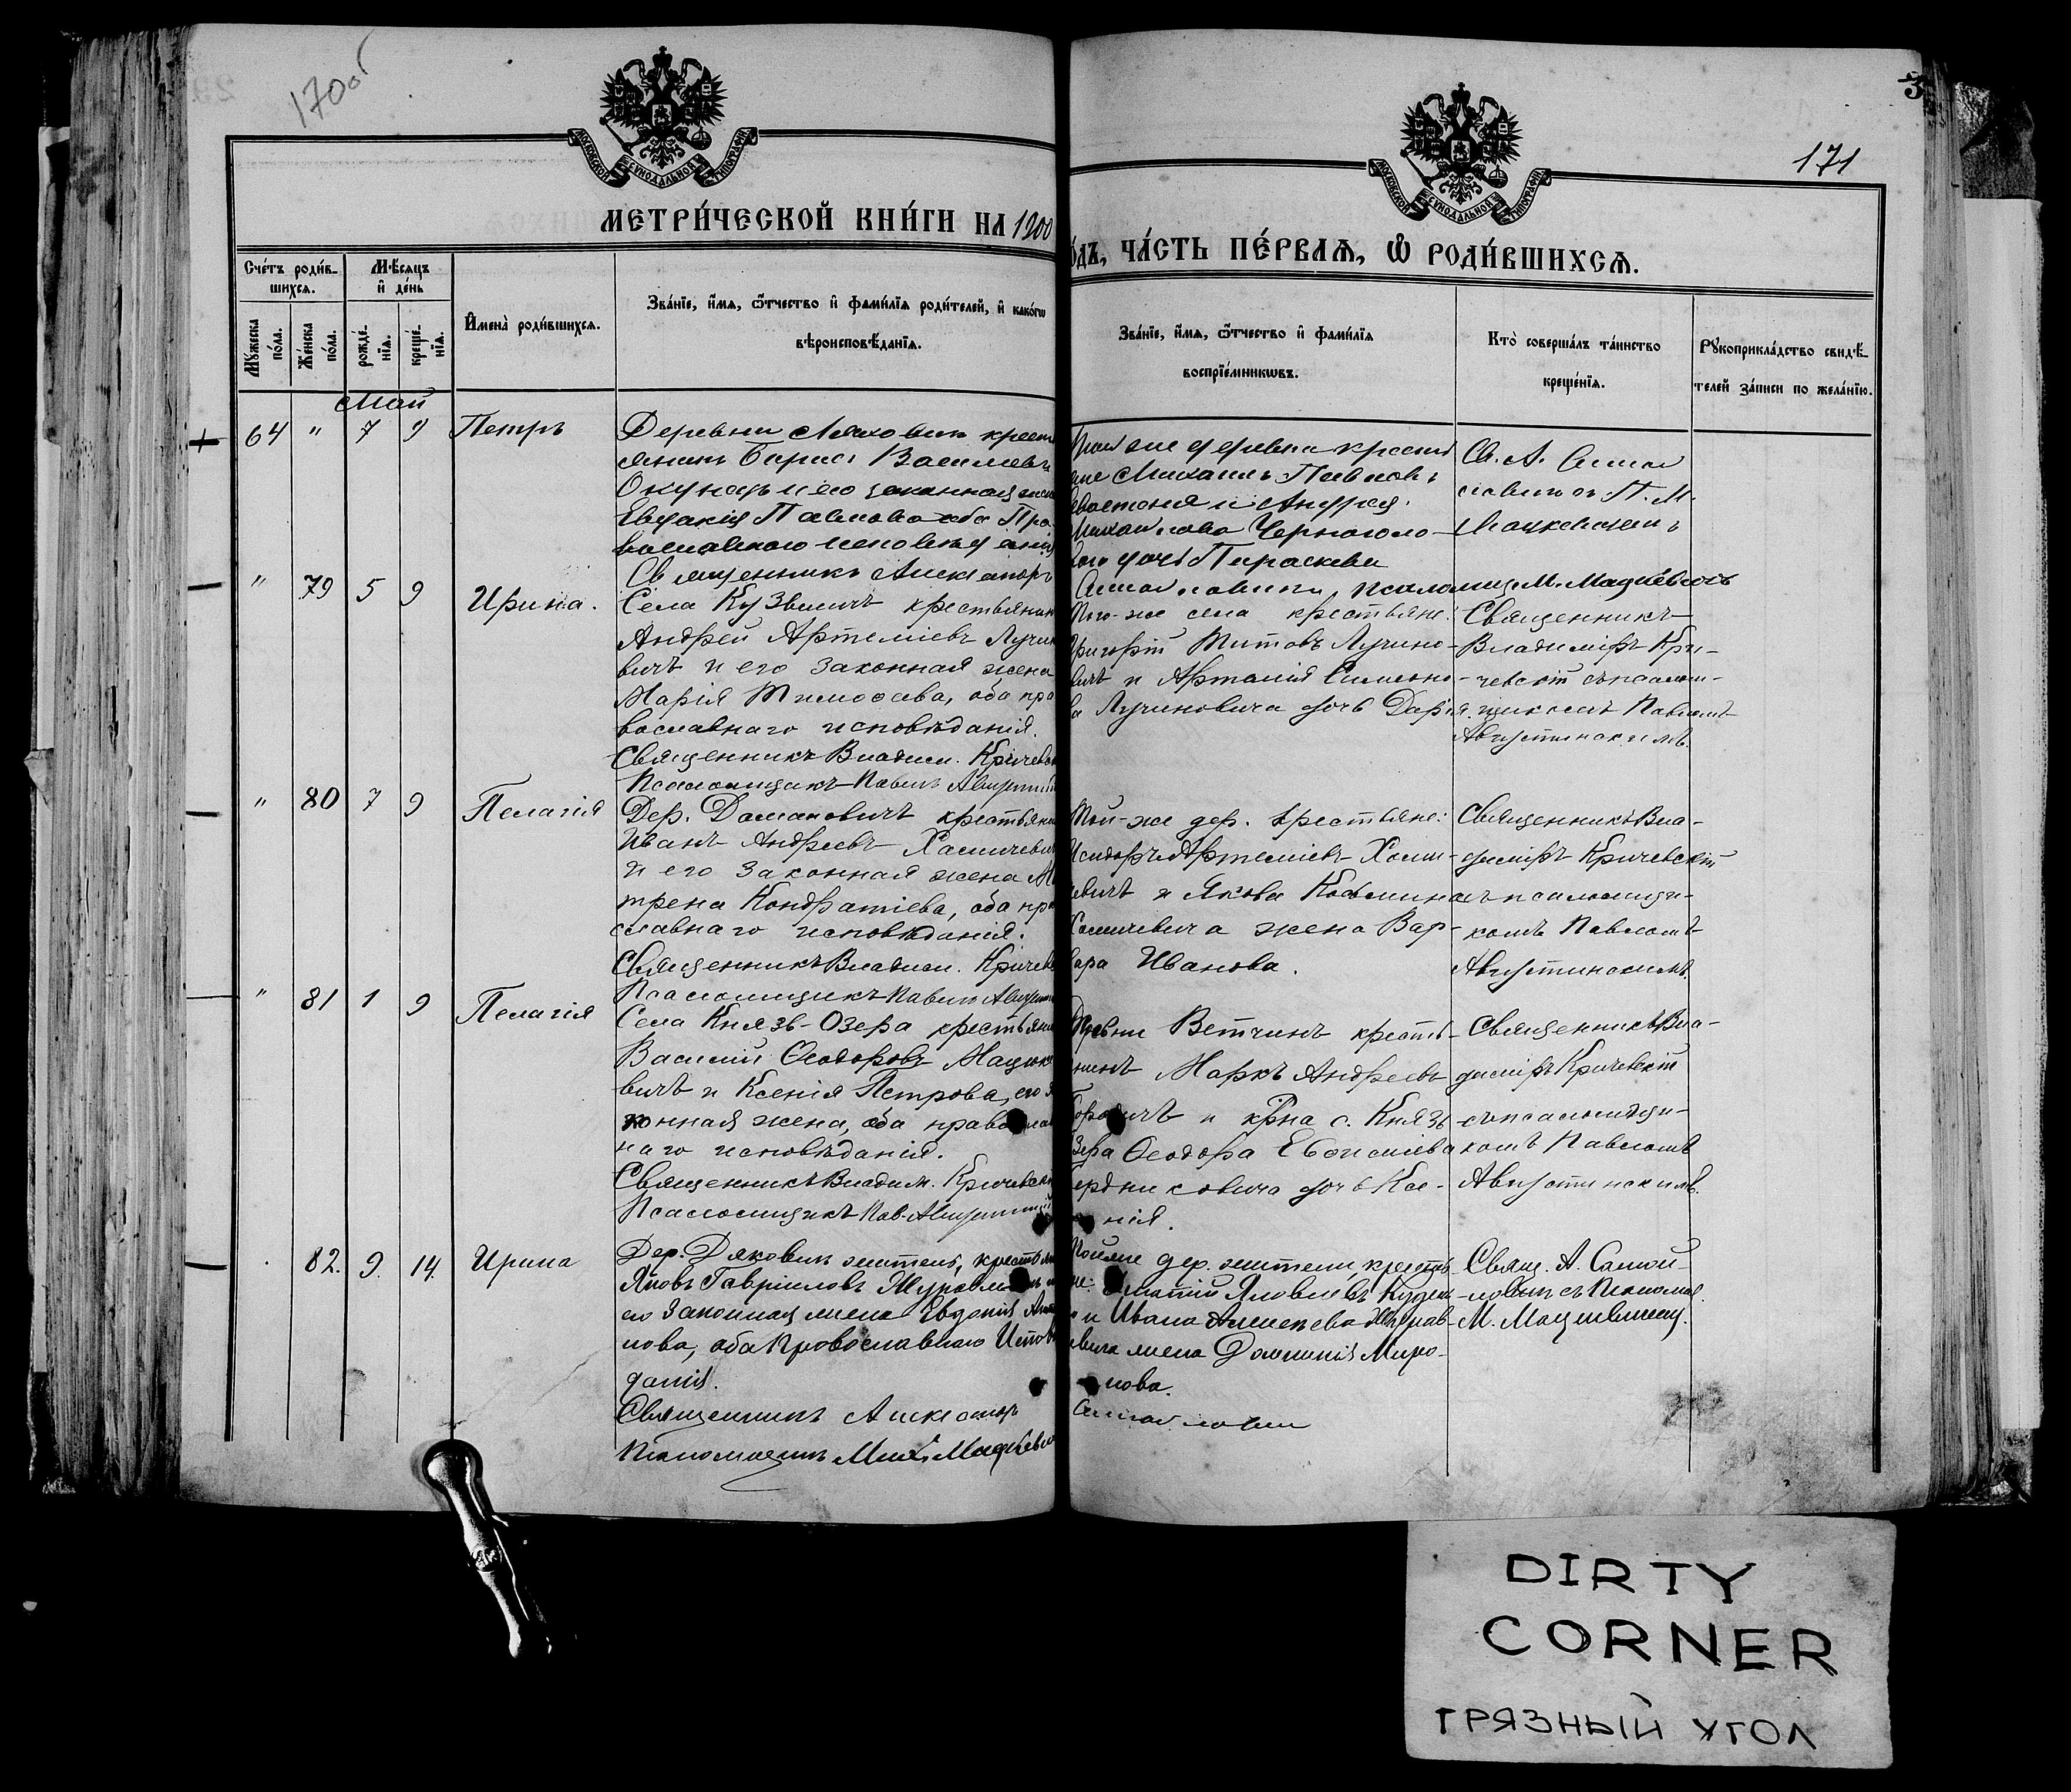 170об
171
3
МОСКОВСКОЙ СѴНОДАЛЬНОЙ ТИПОГРАФІИ
МОСКОВСКОЙ СѴНОДАЛЬНОЙ ТИПОГРАФІИ
МЕТРИ́ЧЕСКОЙ КНИ́ГИ НА 1900
ГО́ДЪ, ЧА́СТЬ ПЕ́РВАѦ, Ѡ҆ РОДИ́ВШИХСѦ.
Сче́тъ роди́в-
шихсѧ.
Мѣ́сѧцъ
и҆ де́нь
Мꙋ́жеска
по́ла.
Же́нска
по́ла.
рожде́-
нїѧ.
креще́-
нїѧ.
И҆мена̀ роди́вшихсѧ.
Зва́нїе, и҆́мѧ, ѻ҆́тчество и҆ фами́лїѧ роди́телей, и҆ како́гѡ
вѣроисповѣ́данїѧ.
Зва́нїе, и҆́мѧ, ѻ҆́тчество и҆ фами́лїѧ
воспрїе́мникѡвъ.
Кто̀ соверша́лъ та́инство
креще́нїѧ.
Рꙋкоприкла́дство свидѣ́-
телей за́писи по жела́нїю.
Май
64 " 7 9 Петръ
Деревни Ляховичъ крест
янинъ Борисъ Васильевъ
и его законная
Евдокія Павлова оба Пра
вославнаго исповѣданія
Священникъ Александръ
Той же деревни крестья
не Михаилъ Павловъ
и Андрея
Черноголо-
дочь Параскева
Самойловичъ псаломщ. М. Мацкевичъ
Св. А. Самой
ловичъ съ П. М.
Мацкевичемъ
" 79 5 9 Ирина.
Села Кузьмичъ крестьянин
Андрей Артеміевъ Лучин
вичъ и его законная жена
Марія Тимоѳеева, оба пра
вославнаго исповѣданія.
Священникъ Владим. Кричевск
Псаломщикъ Павелъ Августин
Того-же села крестьяне:
Григорій Титовъ Лучино-
вичъ и Артемія Симеоно-
ва Лучиновича дочь Дарія.
Священникъ
Владиміръ Кри-
чевскій съ псалом-
щикомъ Павломъ
Августинскимъ.
" 80 7 9 Пелагія
Дер. Домановичъ крестьянин
Иванъ Андреевъ Хомичевич
и его законная жена Ма
трена Кондратіева, оба пра
славнаго исповѣданія.
Священникъ Владим. Кричев
Псаломщикъ Павелъ Августин
Той-же дер. крестьяне:
Исидоръ Артеміевъ Хоми-
чевичъ и Якова Косьмина
Хомичевича жена Вар-
вара Иванова.
Священникъ Вла-
диміръ Кричевскій
съ псаломщи-
комъ Павломъ
Августинскимъ.
" 81 1 9 Пелагія
Села Князь-Озера крестьяни
Василій Ѳеодоровъ Мацюк
вичъ и Ксенія Петрова, его за
конная жена, оба православ
наго исповѣданія.
Священникъ Владим. Кричевск
Псаломщикъ Пав. Августинскій
Деревни Ветчинъ кресть-
янинъ Маркъ Андреевъ
и кр-на с. Князь
Озера Ѳеодора Евѳиміева
Бердниковича дочь Ксе-
нія.
Священникъ Вла-
диміръ Кричевскій
съ псаломщи-
комъ Павломъ
Августинскимъ.
82. 9. 14. Ирина
Дер. Дяковичъ житель, крестьян
Яковъ Гавріиловъ Журавлевичъ и
его законная жена Евдокія Анто
нова, оба Православнаго Исповѣ
данія.
Священникъ Александръ
Псаломщикъ Мих. Мацкевич
Той же дер. жители, кресть-
яне: Игнатій Яковлевъ
и Ивана Алексѣева Журав-
левича жена Домникія Миро-
нова.
Самойлович
Свящ. А. Самой-
ловичъ съ Псалом.
М. Мацкевичемъ.
DIRTY
CORNER
ГРЯЗНЫЙ УГОЛ